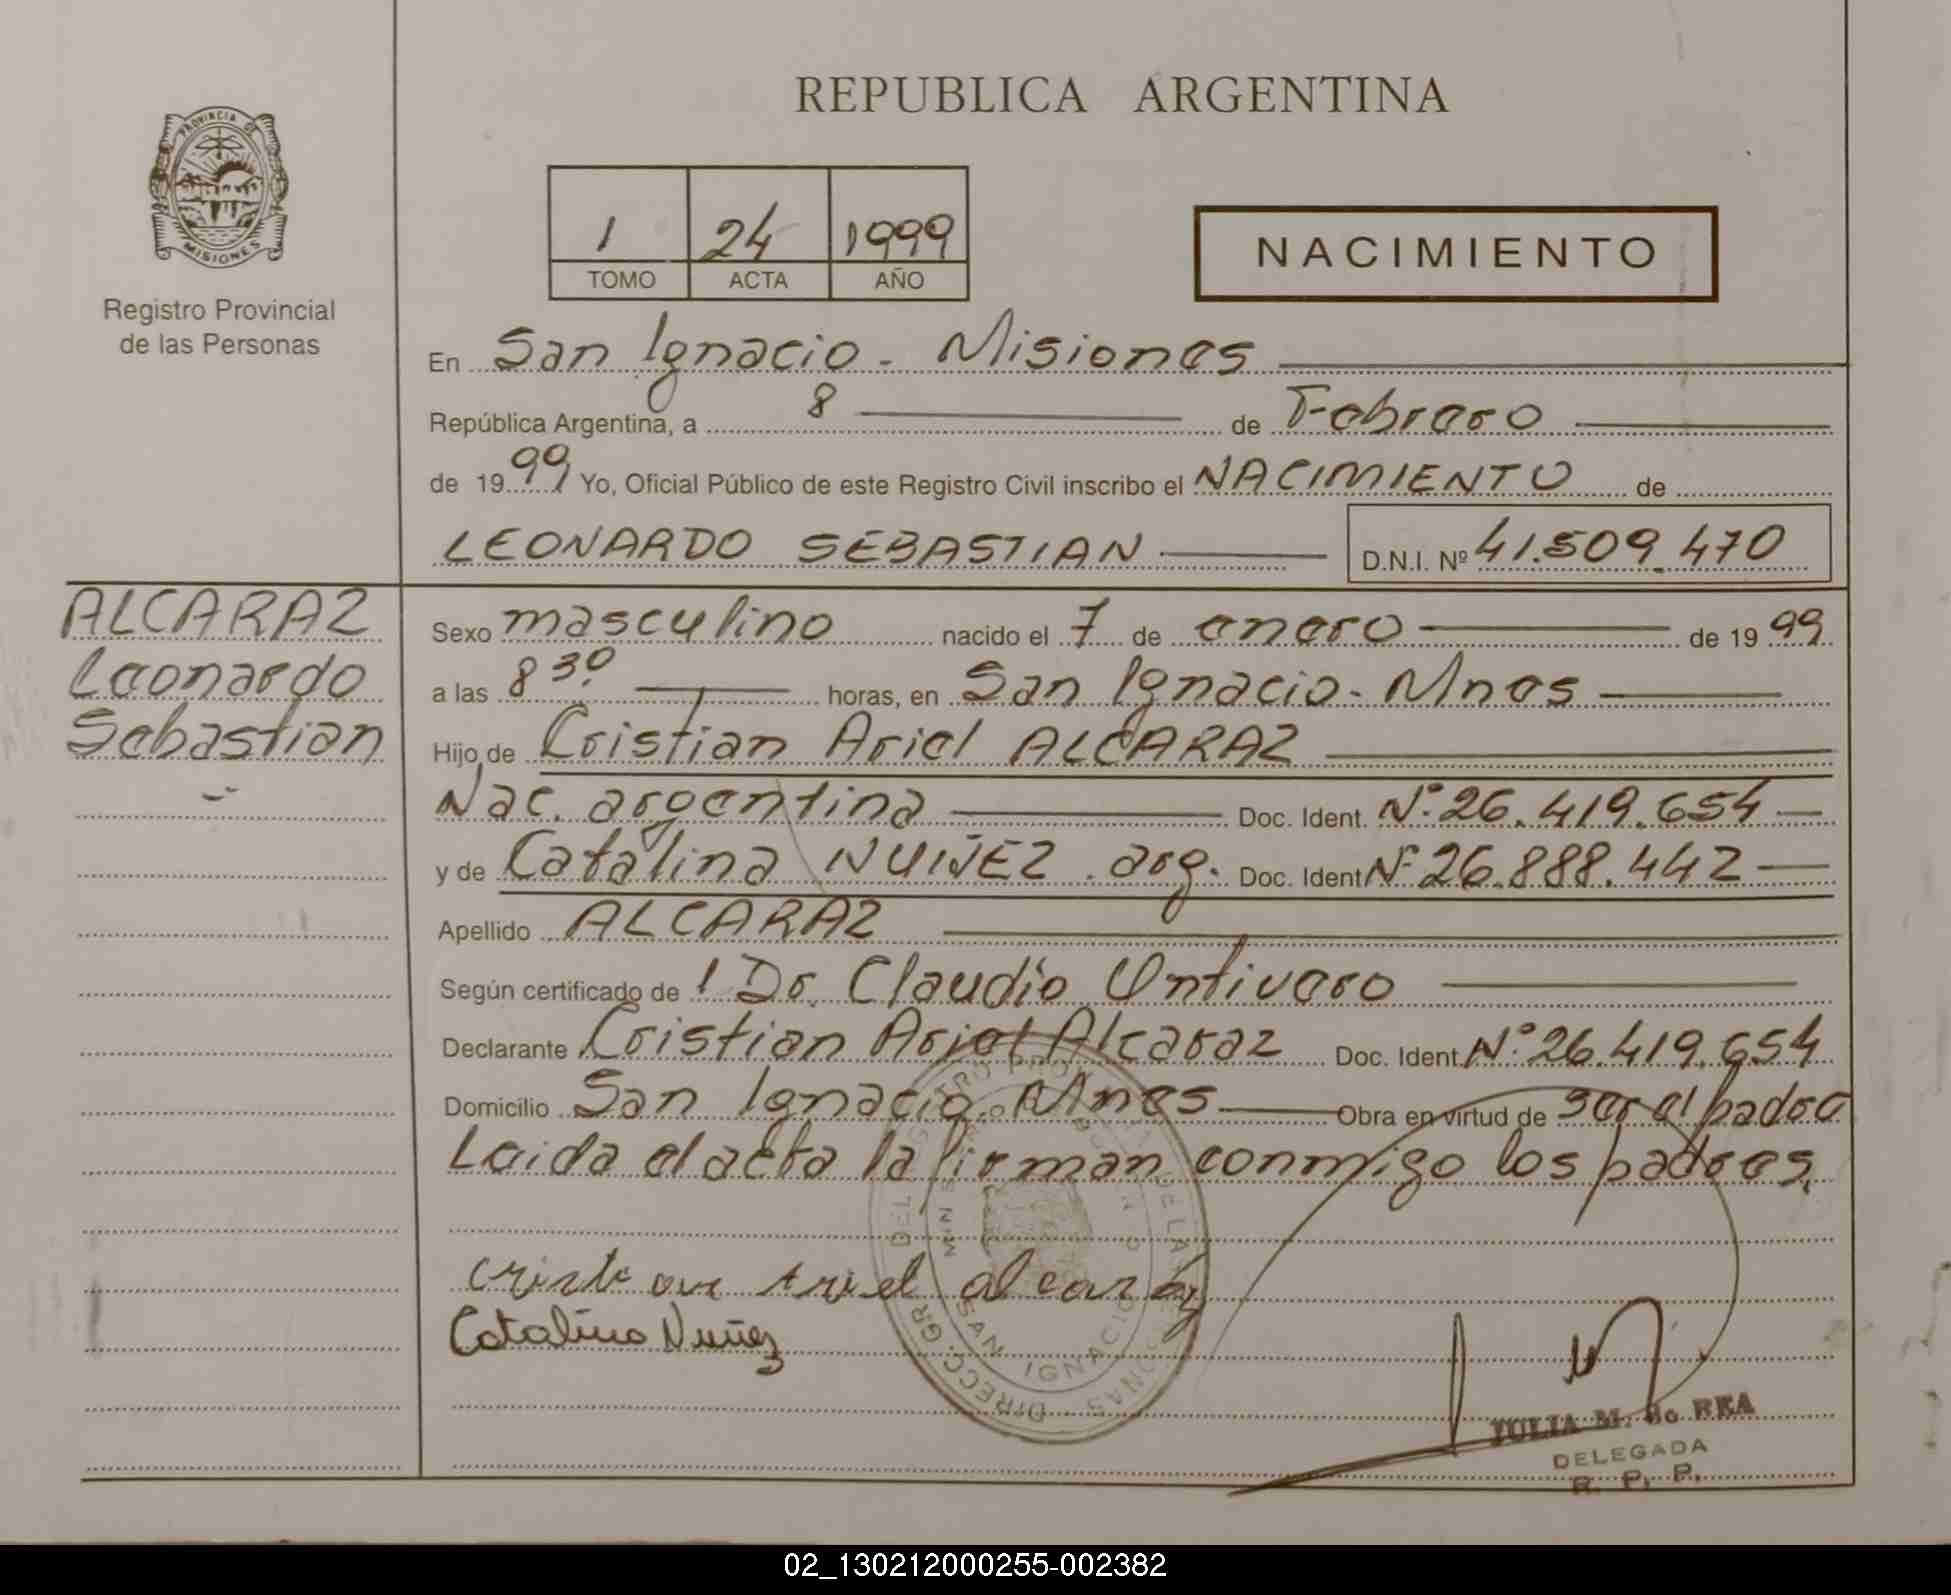 REPUBLICA ARGENTINA
PROVINCIA DE
MISIONES
Registro Provincial
de las Personas
1 24 1999
TOMO ACTA AÑO
NACIMIENTO
En San Ignacio - Misiones
República Argentina, a 8 de Febrero
de 1999 Yo, Oficial Público de este Registro Civil inscribo el NACIMIENTO de
LEONARDO SEBASTIAN D.N.I. Nº 41.509.470
ALCARAZ
Leonardo
Sebastian
Sexo masculino nacido el 7 de enero de 1999
a las 8 30 horas, en San Ignacio - Mnes
Hijo de Cristian Ariel ALCARAZ
Nac. argentina Doc. Ident. Nº 26.419.654
y de Catalina NUÑEZ . arg. Doc. Ident Nº 26.888.442
Apellido ALCARAZ
Según certificado de 1 Dr. Claudio Ontivero
Declarante Cristian Ariel Alcaraz Doc. Ident Nº 26.419.654
Domicilio San Ignacio. Mnes Obra en virtud de ser el padre
Leida el acta la firman conmigo los padres.
cristian Ariel alcaraz
Catalina Nuñez
SAN IGNACIO
JULIA M. de REA
DELEGADA
R. P. P.
02_130212000255-002382